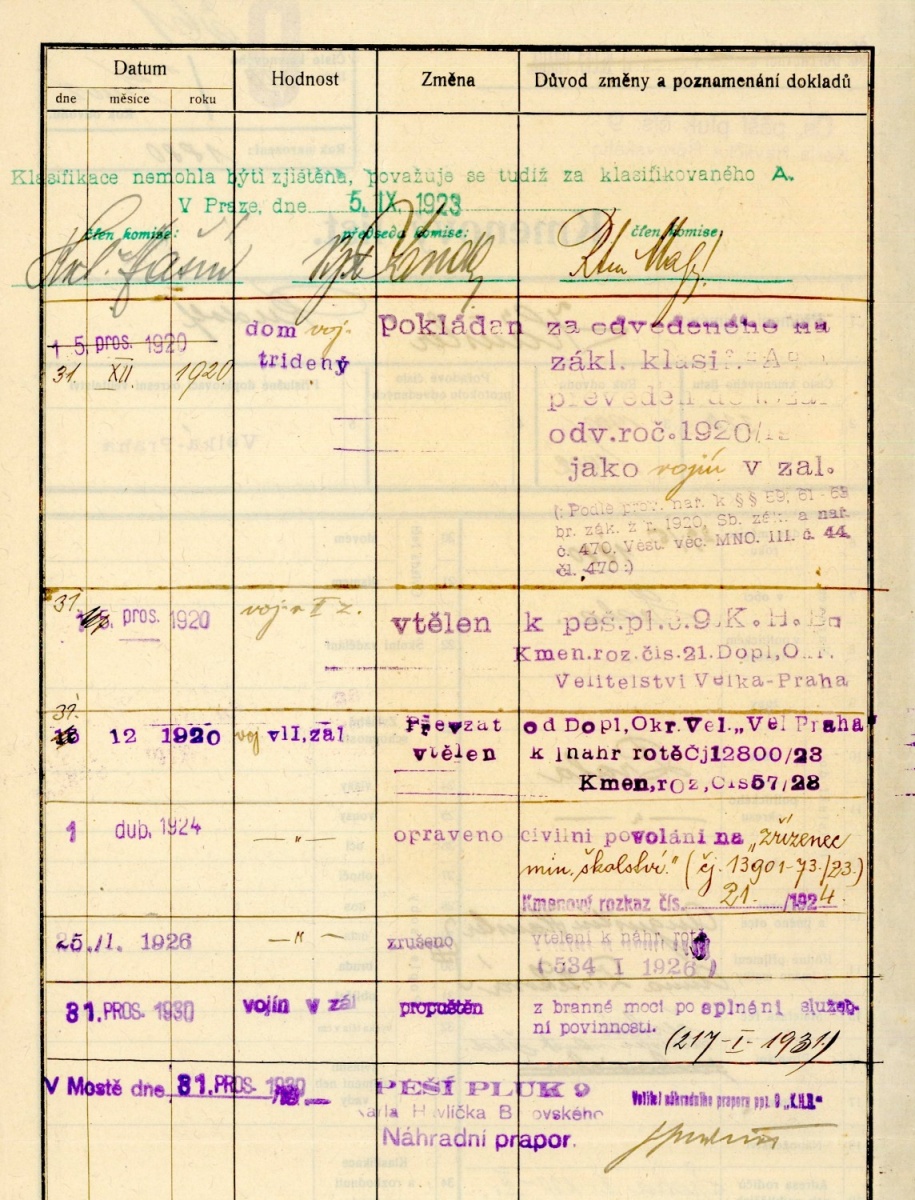 Datum Hodnost Změna Důvod změny a poznamenání dokladů
dne měsíce roku
Klasifikace nemohla býti zjištěna, považuje se tudíž za klasifikovaného A.
V Praze, dne 5. IX. 1923
člen komise: předseda komise: člen komise:
15. pros. 1920 dom voj- pokládán za odvedeného na
31 XII 1920 tridený zákl. klasif. A
převeden do
odv.roč.1920/
jako vojín v zál.
(: Podle prov. nař. k §§ 59, 61-63
br. zák. z r. 1920, Sb. zák. a nař.
č. 470, Věst. věc. MNO. III. č. 44,
čl. 470:)
31. pros. 1920 voj. v I z. vtělen k pěš.pl.č.9.K.H.B.
Kmen.roz.čís.21.Dopl,O.
Velitelství Velká-Praha
31. 12 1920 voj vII,zál Převzat od Dopl,Okr.Vel.„Vel Praha"
vtělen k náhr rotěČj12800/23
Kmen,roz,čís57/23
1 dub. 1924 —"— opraveno civilní povolání na „zřízenec
min. školství." (čj. 13901-73./23.)
Kmenový rozkaz čís. 21. /1924.
25./I. 1926 —"— zrušeno vtělení k náhr. rotě
(534 I 1926)
31. PROS. 1930 vojín v zál propuštěn z branné moci po splnění služeb-
ní povinnosti.
(217-I-1931)
V Mostě dne 31. PROS. 1930 PĚŠÍ PLUK 9 Velitel náhradního praporu pěš. pl. 9 „K.H.B."
Karla Havlíčka Borovského
Náhradní prapor.